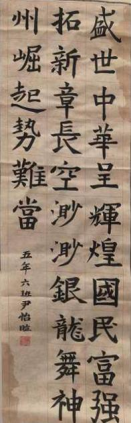 盛世中華呈輝煌國民富强
拓新章長空渺渺銀龍舞神
州崛起势難當
五年六班尹怡